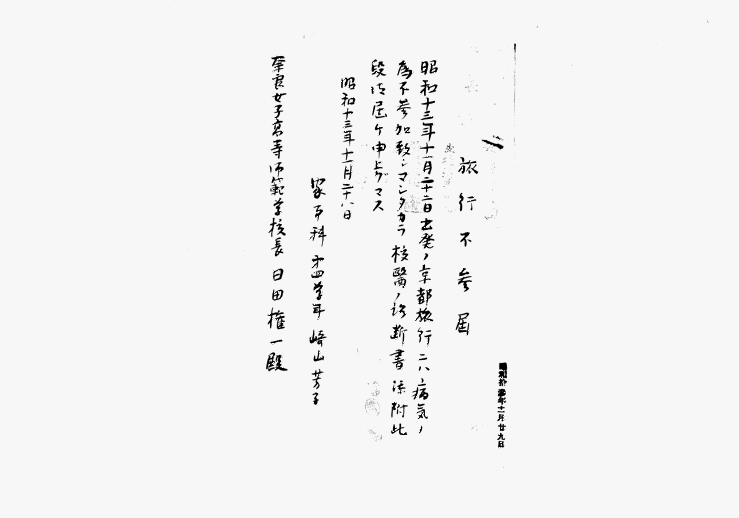 昭和拾參年十一月廿九日
旅行不参届
昭和十三年十一月二十二日出発ノ京都旅行ニハ病気ノ
為不参加致シマシタカラ校醫ノ診断書添附此
段御届ケ申上ゲマス
昭和十三年十一月二十八日
家事科第四学年 崎山芳子
奈良女子高等師範学校長 日田権一殿